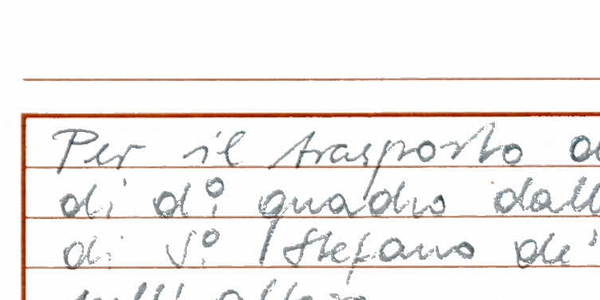 Per il trasporto
di d:º quadro dall
di S:º Stefano de'